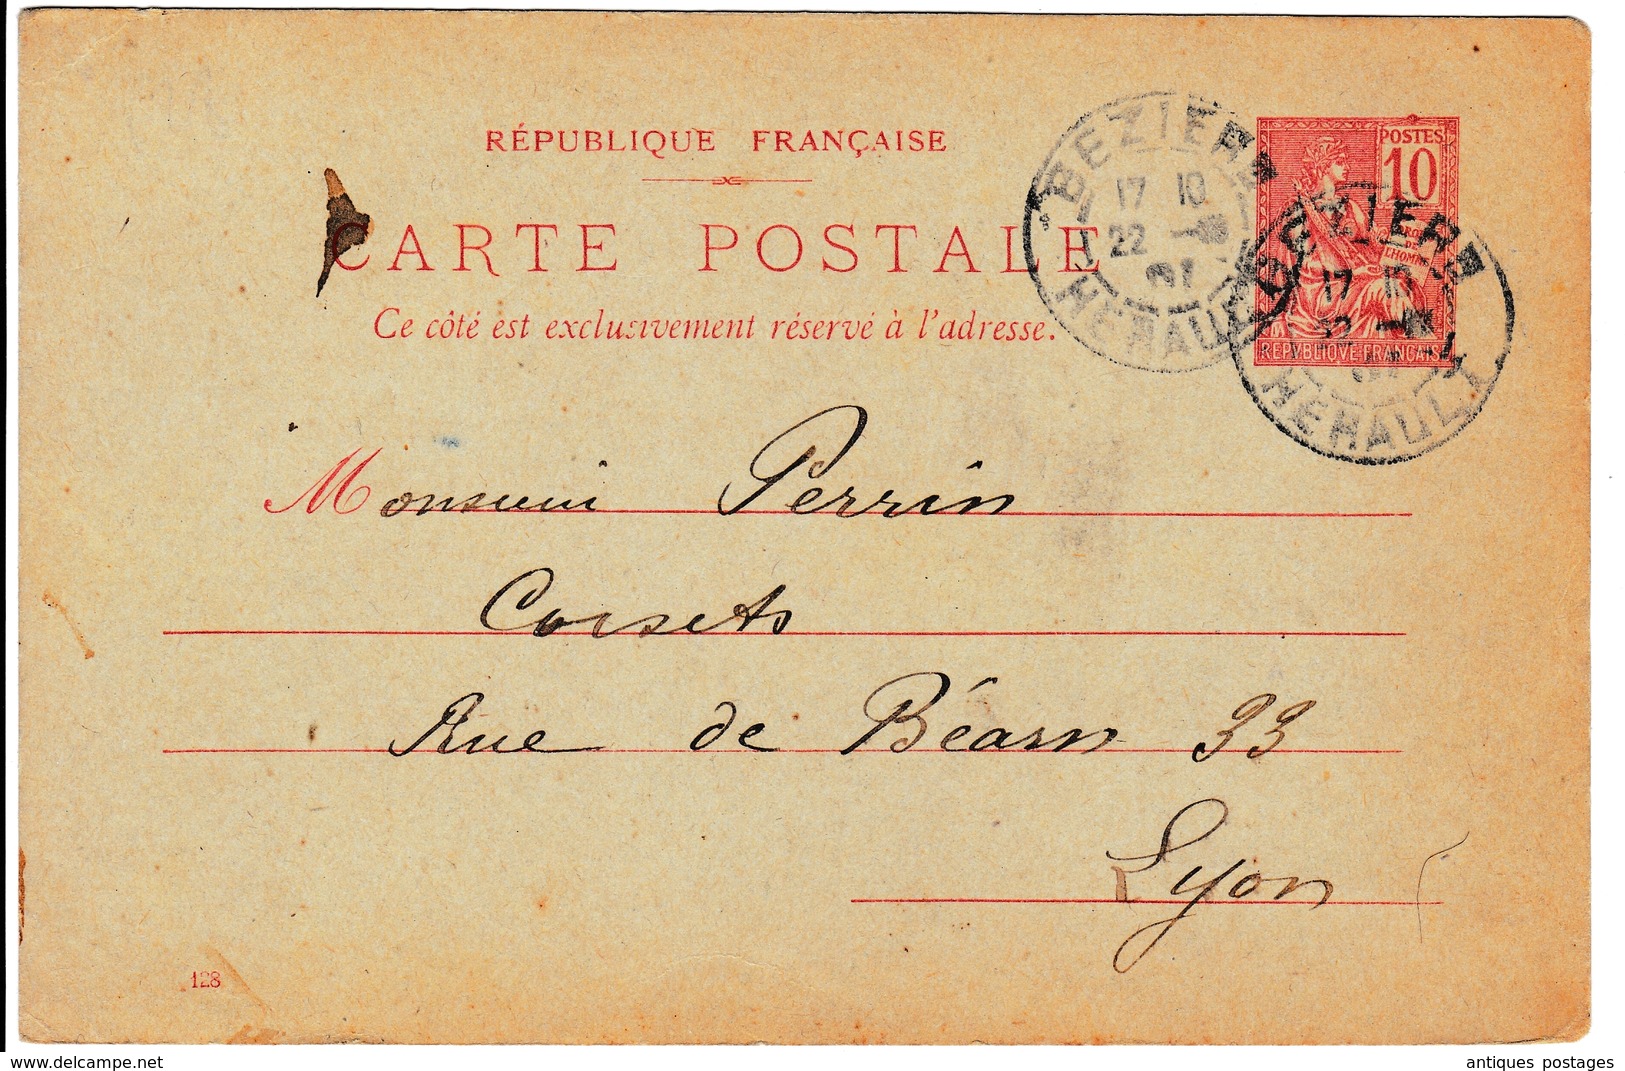 RÉPUBLIQUE FRANÇAISE
CARTE POSTALE
Ce côté est exclusivement réservé à l'adresse.
BEZIERS
17 10
22
01
HERAULT
POSTES
10
DROITS DE L'HOMME
REPVBLIQVE FRANÇAISE
BEZIERS
17 10
22
01
HERAULT
Monsieur Perrin
Corsets
Rue de Béarn 33
Lyon
128
www.delcampe.net
antiques postages